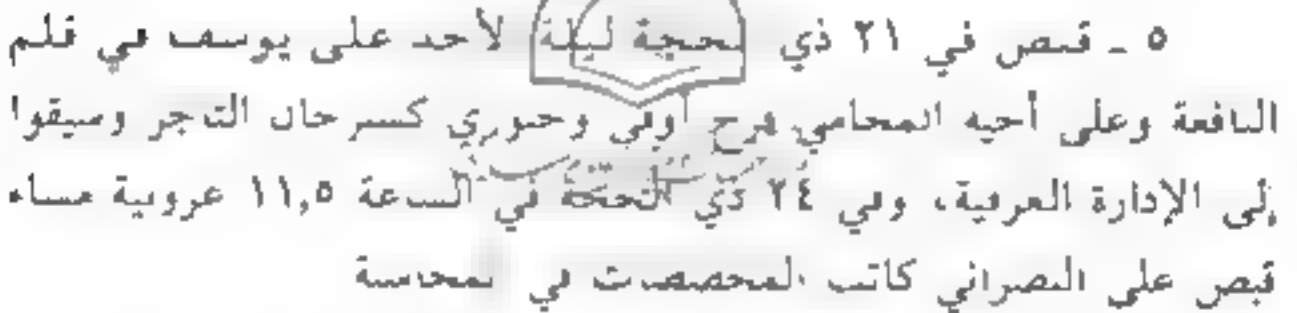 ٥ ـ قبض في ٢١ ذي الحجة ليلة الأحد على يوسف في قلم
النافعة وعلى أخيه المحامي فرح أوفي وحوري كسرحان التاجر وسيقوا
إلى الإدارة العرفية، وفي ٢٤ ذي الحجة في الساعة ١١,٥ عروبية مساء
قبض على النصراني كاتب المخصصات في المحاسبة